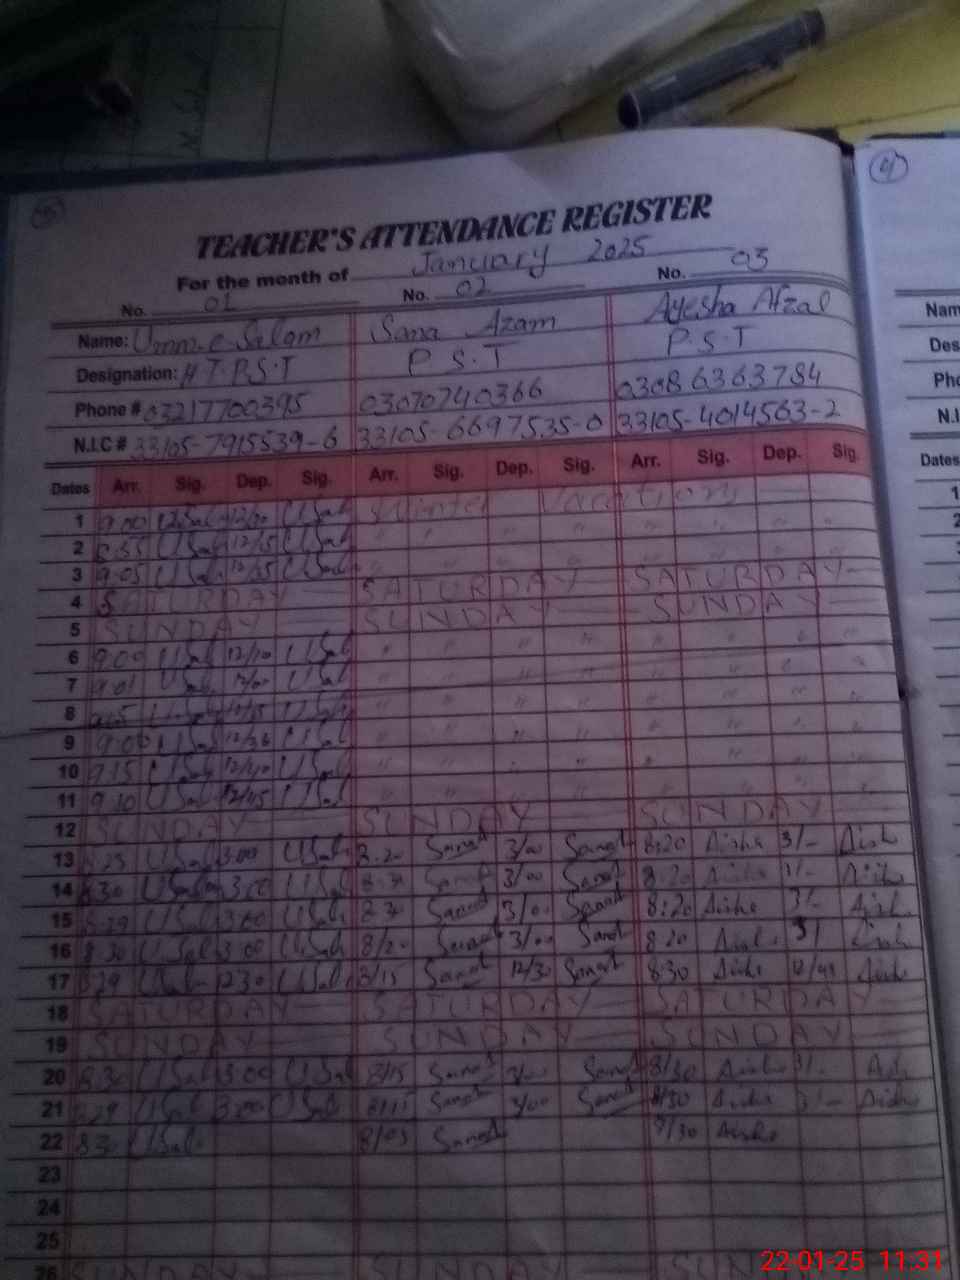 4
TEACHER'S ATTENDANCE REGISTER
For the month of January 2025
No. 01 No. 02 No. 03
Name: Umm-e-Salam Sana Azam Ayesha Afzal
Designation: H T.P.S.T P S.T P.S.T
Phone # 03217700395 03070740366 03086363784
N.I.C # 33105-7915539-6 33105-6697535-0 33105-4014563-2
Dates Arr. Sig. Dep. Sig. Arr. Sig. Dep. Sig. Arr. Sig. Dep. Sig.
1 9.00 USal 12/30 USal Winter Vacations
2 8.55 USal 12/15 USal " " " " " " "
3 9.05 USal 12/35 USal " " " " " " "
4 SATURDAY SATURDAY SATURDAY
5 SUNDAY SUNDAY SUNDAY
6 9.00 USal 12/10 USal " " " " " " "
7 9.01 USal USal " " " " " "
8 USal USal " " " " " "
9 9.00 USal 12/30 USal " " " " " "
10 9.15 USal 12/40 USal " " " "
11 9.10 USal 12/45 USal " " " " " "
12 SUNDAY SUNDAY SUNDAY
13 8.25 USal 3.00 USal 8.20 Sana 3/00 Sana 8:20 Aisha 3/- Aisha
14 8.30 USal 3.00 USal 8.30 Sana 3/00 Sana 8.20 Aisha 3/- Aisha
15 8.29 USal 3.00 USal 8.30 Sana 3/00 Sana 8:20 Aisha 3/- Aisha
16 8.30 USal 3.00 USal 8/20 Sana 3/00 Sana 8.20 Aisha 3/ Aisha
17 8.29 USal 12.30 USal 8/15 Sana 12/30 Sana 8:30 Aisha 12/45 Aisha
18 SATURDAY SATURDAY SATURDAY
19 SUNDAY SUNDAY SUNDAY
20 8.30 USal 3.00 USal 8/15 Sana 3/00 Sana 8/30 Aisha 3/- Aisha
21 8.29 USal 3.00 USal 8/15 Sana 3/00 Sana 8/30 Aisha 3/- Aisha
22 8.30 USal 8/05 Sana 8/30 Aisha
23
24
25
26 SUNDAY SUN
Nam
Des
Pho
N.I
Dates
1
2
3
22-01-25 11:31